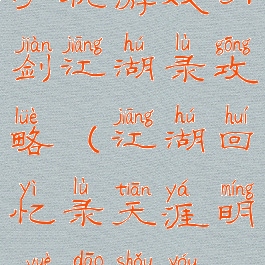 jiàn jiāng hú lù gōng
剑江湖录攻
lüè jiāng hú huí
略（江湖回
yì lù tiān yá míng
忆录天涯明
yuè dāo shǒu yóu